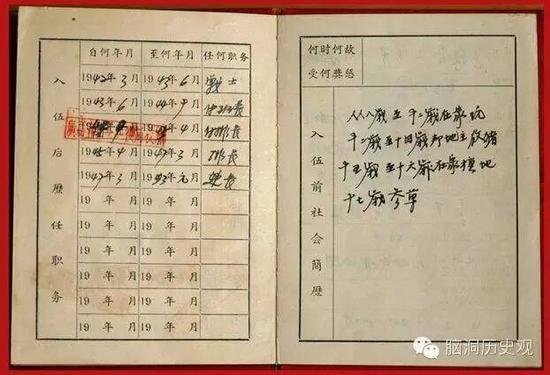 自何年月 至何年月 任何职务
入伍后歷任职务
1942年3月 1943年6月 战士
1943年6月 1944年9月
年4月
1945年4月 1947年3月 排长
1947年3月 19 年元月 长
19 年 月 19 年 月
19 年 月 19 年 月
19 年 月 19 年 月
19 年 月 19 年 月
19 年 月 19 年 月
何时何故
受何奬惩
入伍前社会简歷
从八岁至十二岁在家玩
十二岁至十四岁 地主放猪
十五岁至十六岁在家种地
十七岁参军
脑洞历史观